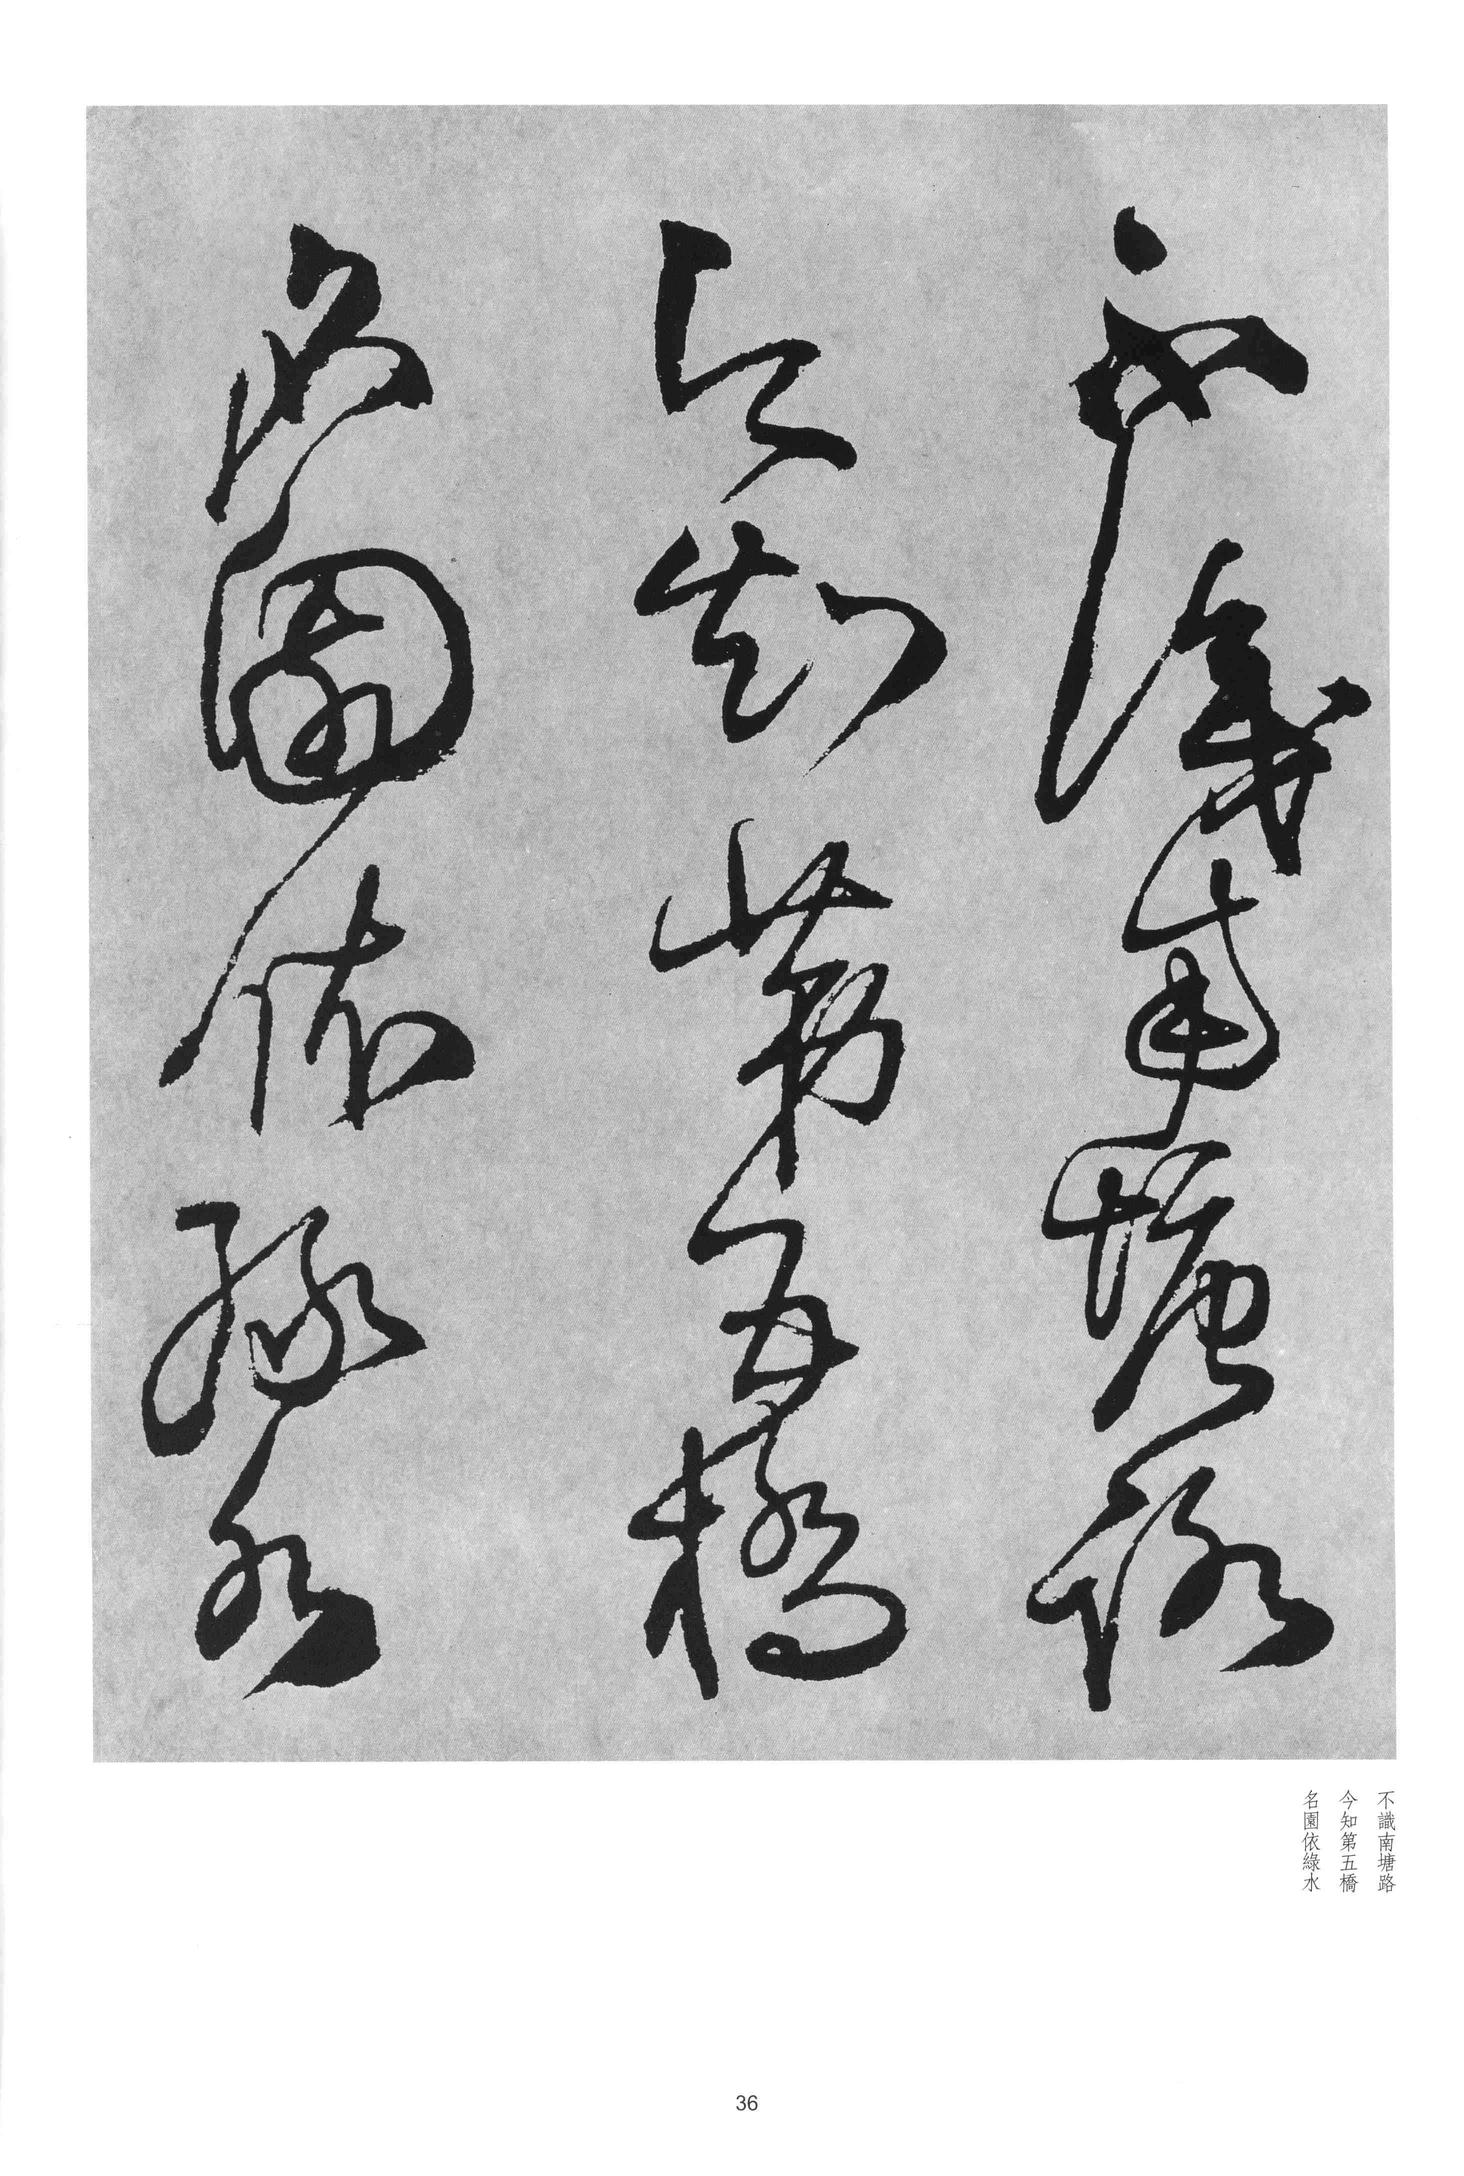 不識南塘路
今知第五橋
名園依綠水
不識南塘路
今知第五橋
名園依綠水
36